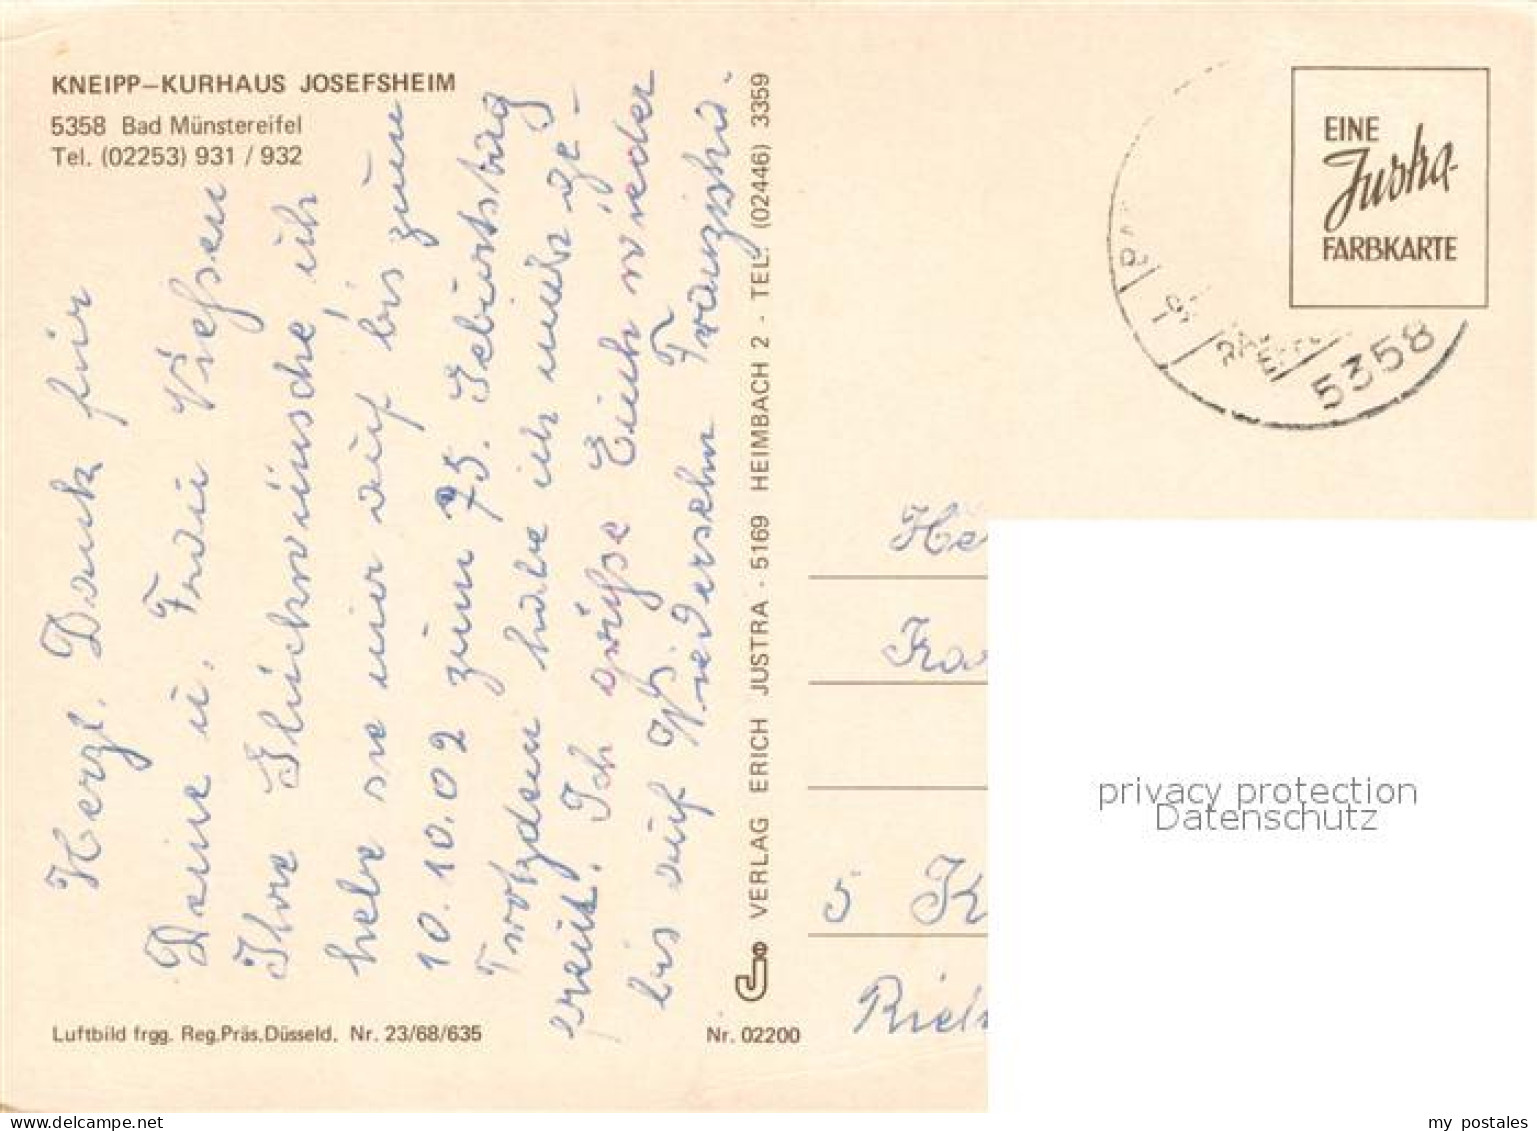 KNEIPP–KURHAUS JOSEFSHEIM
5358 Bad Münstereifel
Tel. (02253) 931 / 932
Herzl. Dank für
Deine u. Frau
Ihre Glückwünsche ich
hebe sie mir auf bis zum
10.10.02 zum 75. Geburtstag
Trotzdem habe ich mich ge-
freut. Ich grüße Euch wieder
bis auf Wiedersehn Franziska.
Luftbild frgg. Reg.Präs.Düsseld. Nr. 23/68/635
Nr. 02200
VERLAG ERICH JUSTRA · 5169 HEIMBACH 2 - TEL. (02446) 3359
EINE
Justra-
FARBKARTE
5358
5 K
privacy protection
Datenschutz
my postales